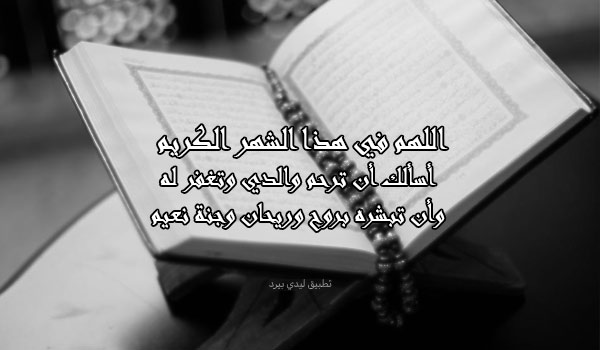 اللهم في هذا الشهر الكريم
أسألك أن ترحم والدي وتغفر له
وأن تبشره بروح وريحان وجنة نعيم
تطبيق ليدي بيرد